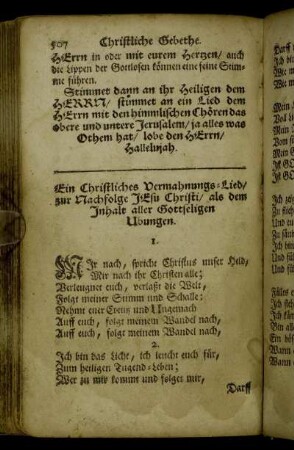 507 Christliche Gebethe.
HErrn in oder mit eurem Hertzen/ auch
die Lippen der Gottlosen können eine feine Stim-
me führen.
Stimmet dann an ihr Heiligen dem
HERRN/ stimmet an ein Lied dem
HErrn mit den himmlischen Chören das
obere und untere Jerusalem/ ja alles was
Othem hat/ lobe den HErrn/
Hallelujah.
Ein Christliches Vermahnungs-Lied/
zur Nachfolge JEsu Christi/ als dem
Inhalt aller Gottseligen
Ubungen.
1.
MIr nach, spricht Christus unser Held,
Mir nach ihr Christen alle;
Verleugnet euch, verlaßt die Welt,
Folget meiner Stimm und Schalle:
Nehmt euer Creutz und Ungemach
Auff euch, folget meinem Wandel nach,
Auff euch, folget meinem Wandel nach,
2.
Ich bin das Licht, ich leucht euch für,
Zum heiligen Tugend-Leben;
Wer zu mir kommt und folget mir,
Darff